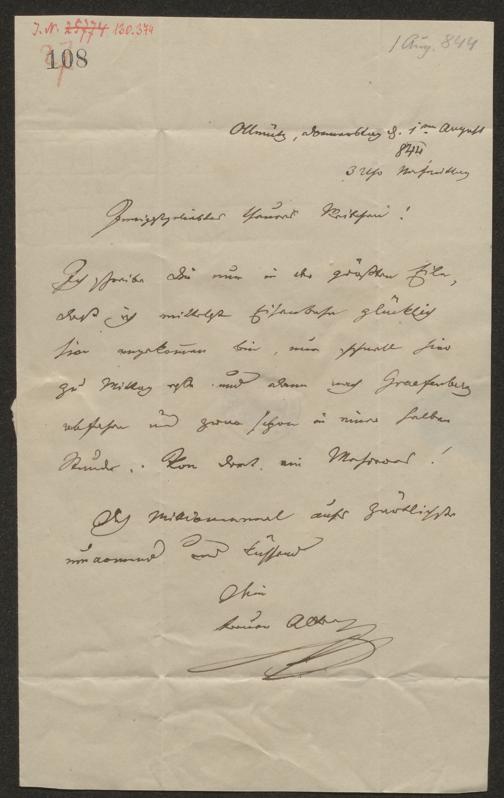 J. N. 25774 130.374
108
1 Aug. 844
Ollmütz, Donnerstag d. 1ten August
844
3 Uhr Nachmittag
Innigstgeliebtes theures !
Ich schreibe Dir nur in der größten Eile,
daß ich mittelst Eisenbahn glücklich
hier angekommen bin, nur schnell hier
zu Mittag esse und dann nach Graefenberg
abfahre und zwar schon in einer halben
Stunde. Von dort ein Mehreres!
Dich Millionenmal aufs zärtlichste
umarmend und küssend
Dein
treuer